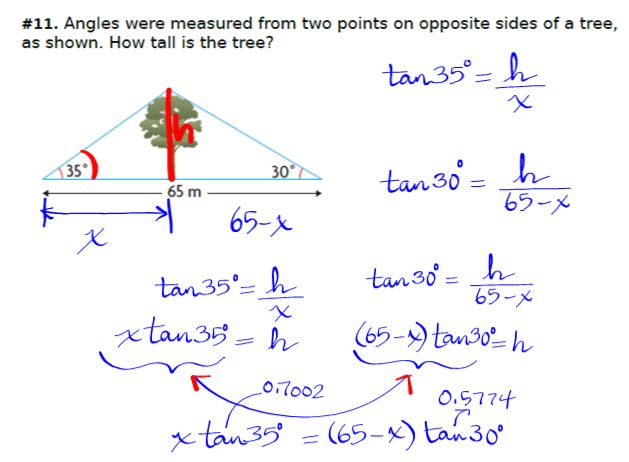 #11. Angles were measured from two points on opposite sides of a tree,
as shown. How tall is the tree?
tan35° = h/x
h
35°
30°
65 m
tan30° = h/65-x
x
65-x
tan35° = h/x
tan30° = h/65-x
x tan35° = h
(65-x) tan30° = h
0.7002
0.5774
x tan35° = (65-x) tan30°